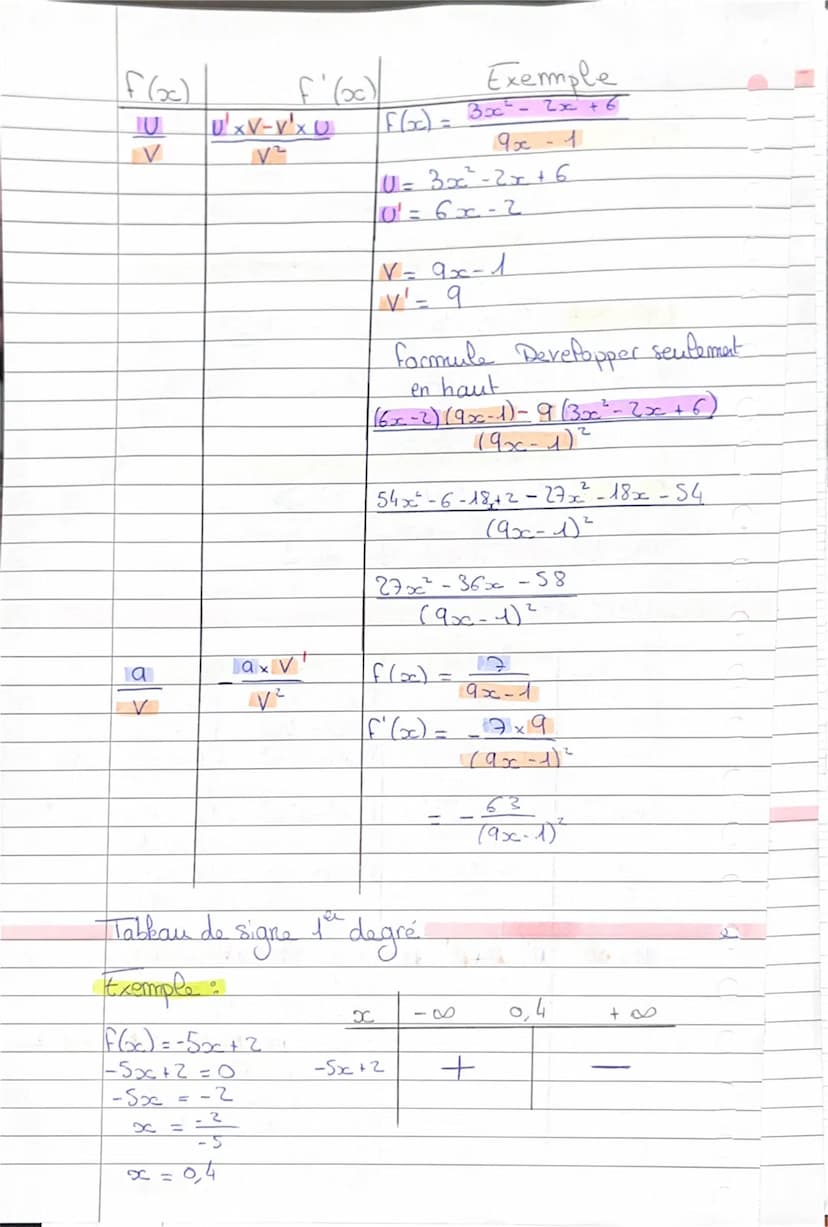 f(x) f'(x) Exemple
U/V (U'×V-V'×U)/V² f(x) = (3x² - 2x + 6)/(9x - 1)
U = 3x² - 2x + 6
U' = 6x - 2
V = 9x - 1
V' = 9
formule Developper seulement
en haut
((6x-2)(9x-1) - 9(3x² - 2x + 6))/(9x - 1)²
(54x² - 6 - 18x + 2 - 27x² - 18x - 54)/(9x - 1)²
(27x² - 36x - 58)/(9x - 1)²
a/V -(a×V')/V² f(x) = 7/(9x - 1)
f'(x) = -(7×9)/(9x - 1)²
= -63/(9x - 1)²
Tableau de signe 1er degré
Exemple :
x -∞ 0,4 +∞
f(x) = -5x + 2
-5x + 2 = 0 -5x + 2 + −
-5x = -2
x = -2/-5
x = 0,4